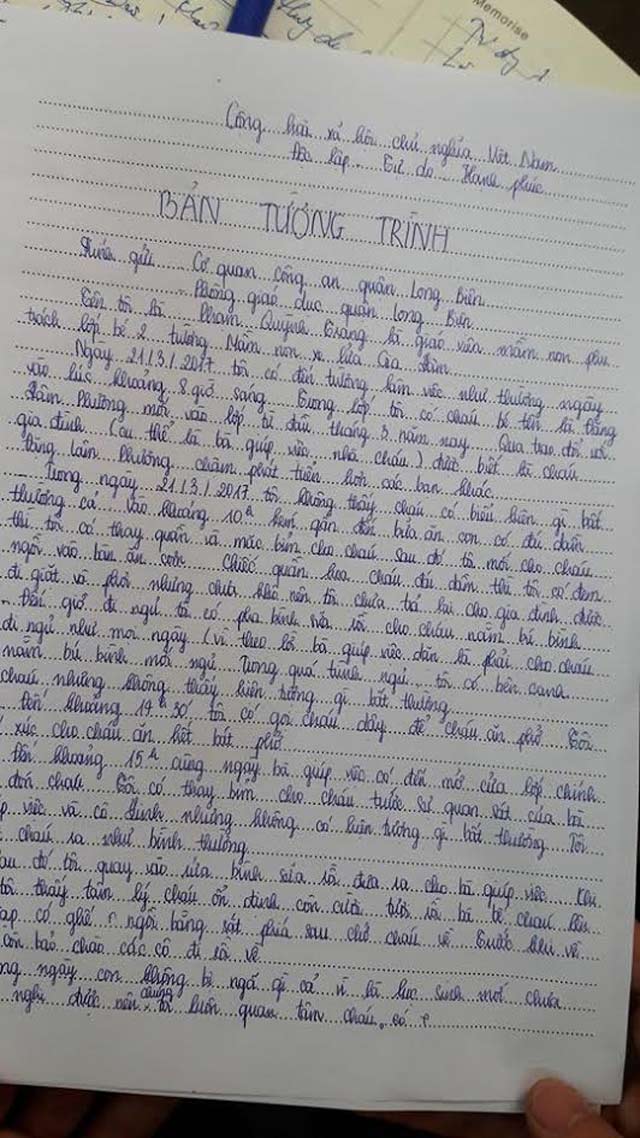 Memorise
Cộng hoà xã hội chủ nghĩa Việt Nam
Độc lập - Tự do - Hạnh phúc
BẢN TƯỜNG TRÌNH
Kính gửi Cơ quan công an quận Long Biên
Phòng giáo dục quận Long Biên
Tên tôi là Phạm Quỳnh Trang là giáo viên mầm non phụ
trách lớp bé 2 trường Mầm non xe lửa Gia Lâm
Ngày 21/3/2017 tôi có đến trường làm việc như thường ngày
vào lúc khoảng 8 giờ sáng Trong lớp tôi có cháu bé tên là Đặng
Lâm Phương mới vào lớp từ đầu tháng 3 năm nay Qua trao đổi với
gia đình (cụ thể là bà giúp việc nhà cháu) được biết là cháu
Đặng Lâm Phương chậm phát triển hơn các bạn khác
Trong ngày 21/3/2017 tôi không thấy cháu có biểu hiện gì bất
thường cả Vào khoảng 10h hơn gần đến bữa ăn con có đái dầm
thì tôi có thay quần và mặc bỉm cho cháu sau đó tôi mới cho cháu
ngồi vào bàn ăn cơm Chiếc quần hoa cháu đái dầm thì tôi có đem
đi giặt và phơi nhưng chưa khô nên tôi chưa trả lại cho gia đình được
Đến giờ đi ngủ tôi có pha bình sữa rồi cho cháu nằm bú bình
đi ngủ như mọi ngày (vì theo lời bà giúp việc dặn là phải cho cháu
nằm bú bình mới ngủ Trong quá trình ngủ tôi có bên cạnh
cháu nhưng không thấy hiện tượng gì bất thường
Đến khoảng 14h30' tôi có gọi cháu dậy để cháu ăn phở Tôi
xúc cho cháu ăn hết bát phở
Đến khoảng 15h cùng ngày bà giúp việc có đến mở cửa lớp chính
đón cháu Tôi có thay bỉm cho cháu trước sự quan sát của bà
p việc và cô Hình nhưng không có hiện tượng gì bất thường Tôi
cháu ra như bình thường
au đó tôi quay vào rửa bình sữa rồi đưa ra cho bà giúp việc Khi
tôi thấy tâm lý cháu ổn định còn cười tươi rồi bà bế cháu lên
ạp có ghế ngồi bằng sắt phía sau chở cháu về Trước khi về
còn bảo chào các cô đi rồi về
ng ngày con không bị ngã gì cả vì là học sinh mới chưa
nghi được nên chúng tôi luôn quan tâm cháu, có